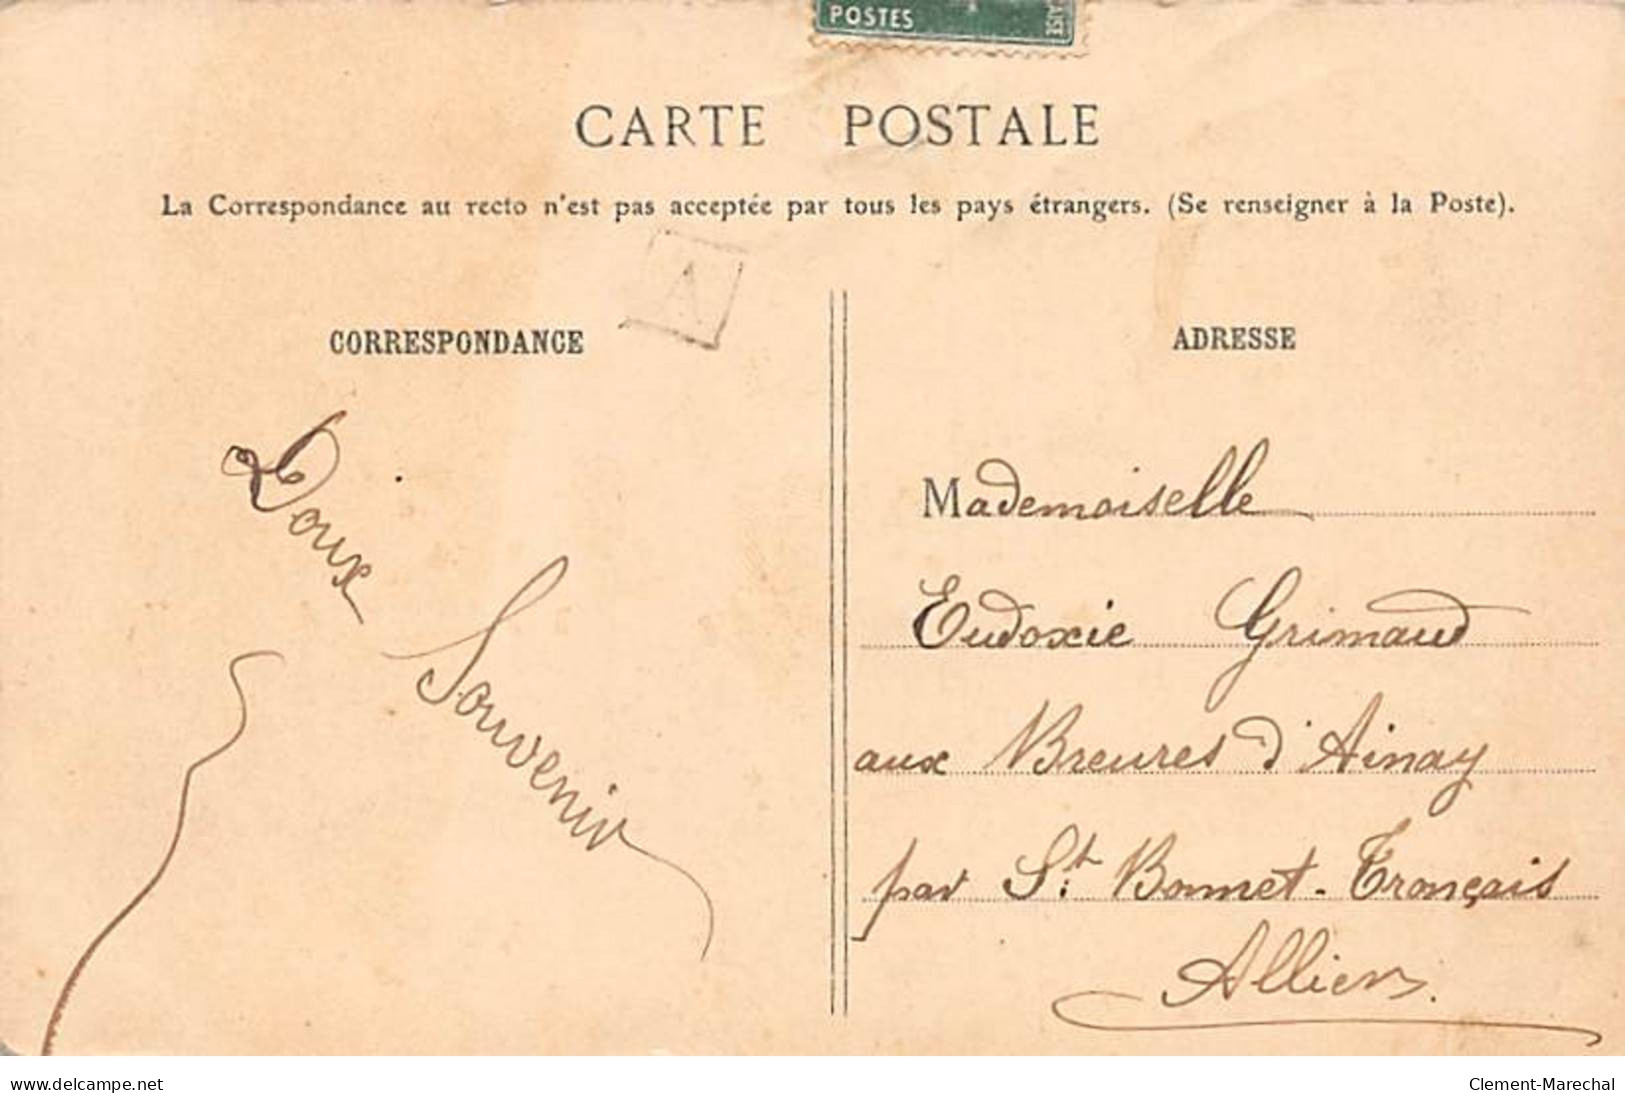 POSTES
AISE
CARTE POSTALE
La Correspondance au recto n'est pas acceptée par tous les pays étrangers. (Se renseigner à la Poste).
A
CORRESPONDANCE
Doux
Souvenir
ADRESSE
Mademoiselle
Eudoxie Grimaud
aux Breures d'Ainay
par St. Bonnet-Tronçais
Allier.
www.delcampe.net
Clement-Marechal